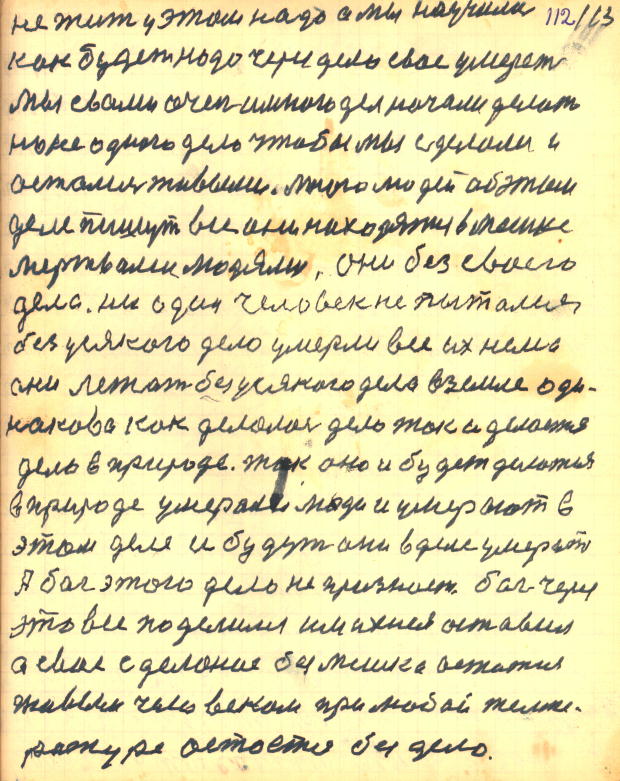 не жит у этом надо а мы научили 112/113
как будет надо через дело свое умерет
мы с вами очен и много дел начали делать
но не одного дело чтобы мы сделали и
остались живыми. Много людей об этом
деле пишут все они находятся в мешке
мертвыми людями, они без своего
дела. ни один человек не пытался
без усякого дело умерли все их нема
они лежат без усякого дела в земле оди-
накова как делалас дело так и делается
дело в природе. так оно и будет делатся
в природе умерали люди и умерают в
этом деле и будут они в деле умерать
А бог этого дело не признает. бог через
это все поделился им их оставил
а свое сделоное без мешка остатся
живым человеком при любой темпе-
ратуре остатся без дело.